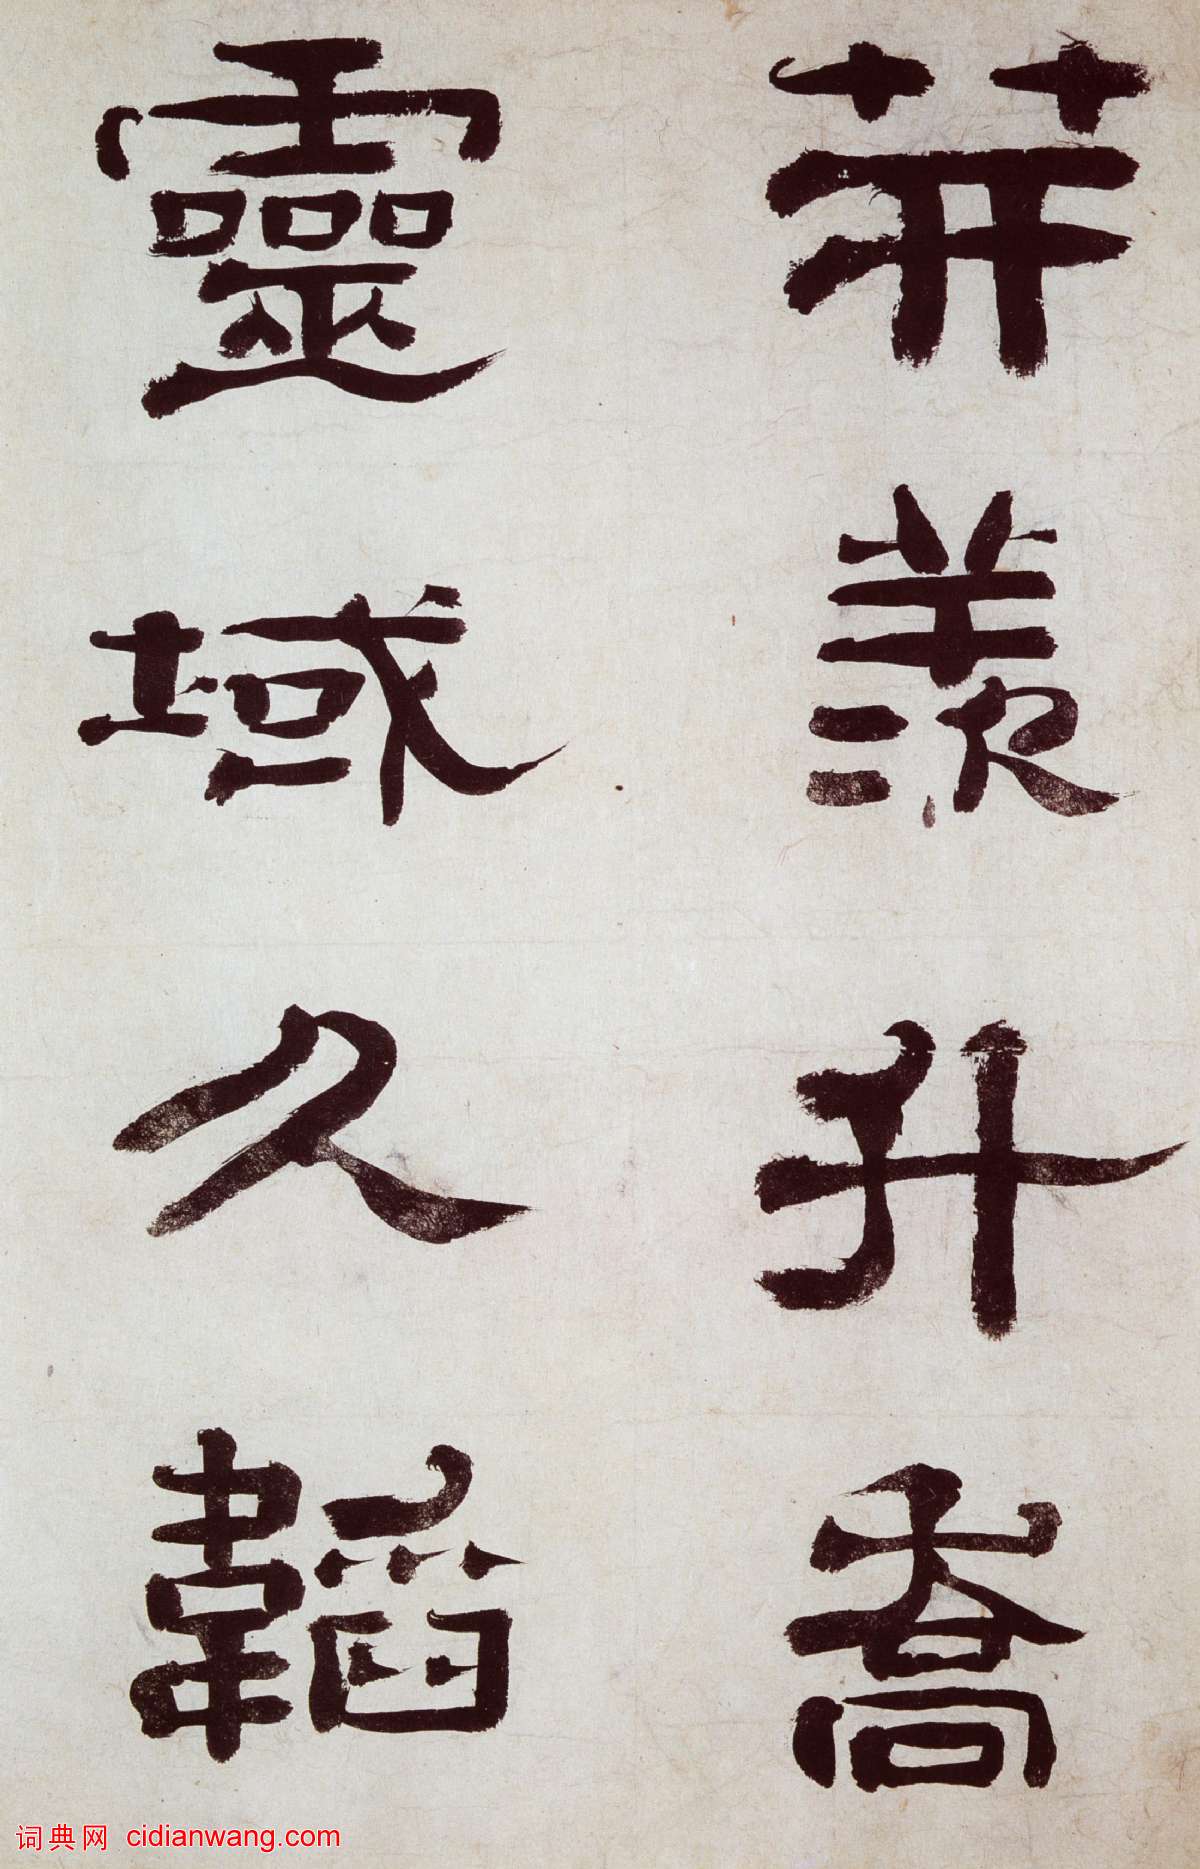 羨升喬
靈域久韜
词典网 cidianwang.com